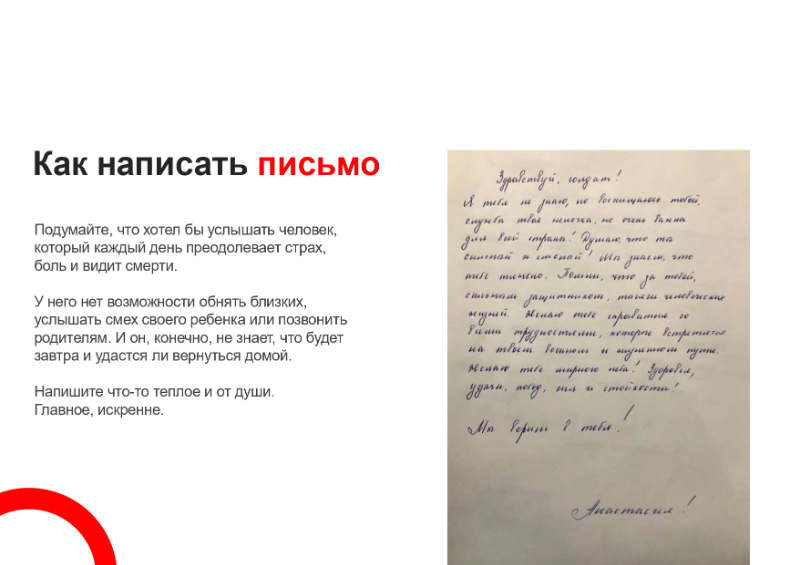 Как написать письмо
Подумайте, что хотел бы услышать человек,
который каждый день преодолевает страх,
боль и видит смерти.
У него нет возможности обнять близких,
услышать смех своего ребенка или позвонить
родителям. И он, конечно, не знает, что будет
завтра и удастся ли вернуться домой.
Напишите что-то теплое и от души.
Главное, искренне.
Здравствуй, солдат!
Я тебя не знаю, но восхищаюсь тобой,
служба твоя нелегка, но очень важна
для всей страны! Думаю, что ты
сильный и смелый! Мы знаем, что
тебе тяжело. Помни, что за тобой,
сильным защитником, тысячи человеческих
жизней. Желаю тебе справиться со
всеми трудностями, которые встретятся
на твоём военном и жизненном пути.
Желаю тебе мирного неба! Здоровья,
удачи, побед, сил и стойкости!
Мы верим в тебя!
Анастасия!